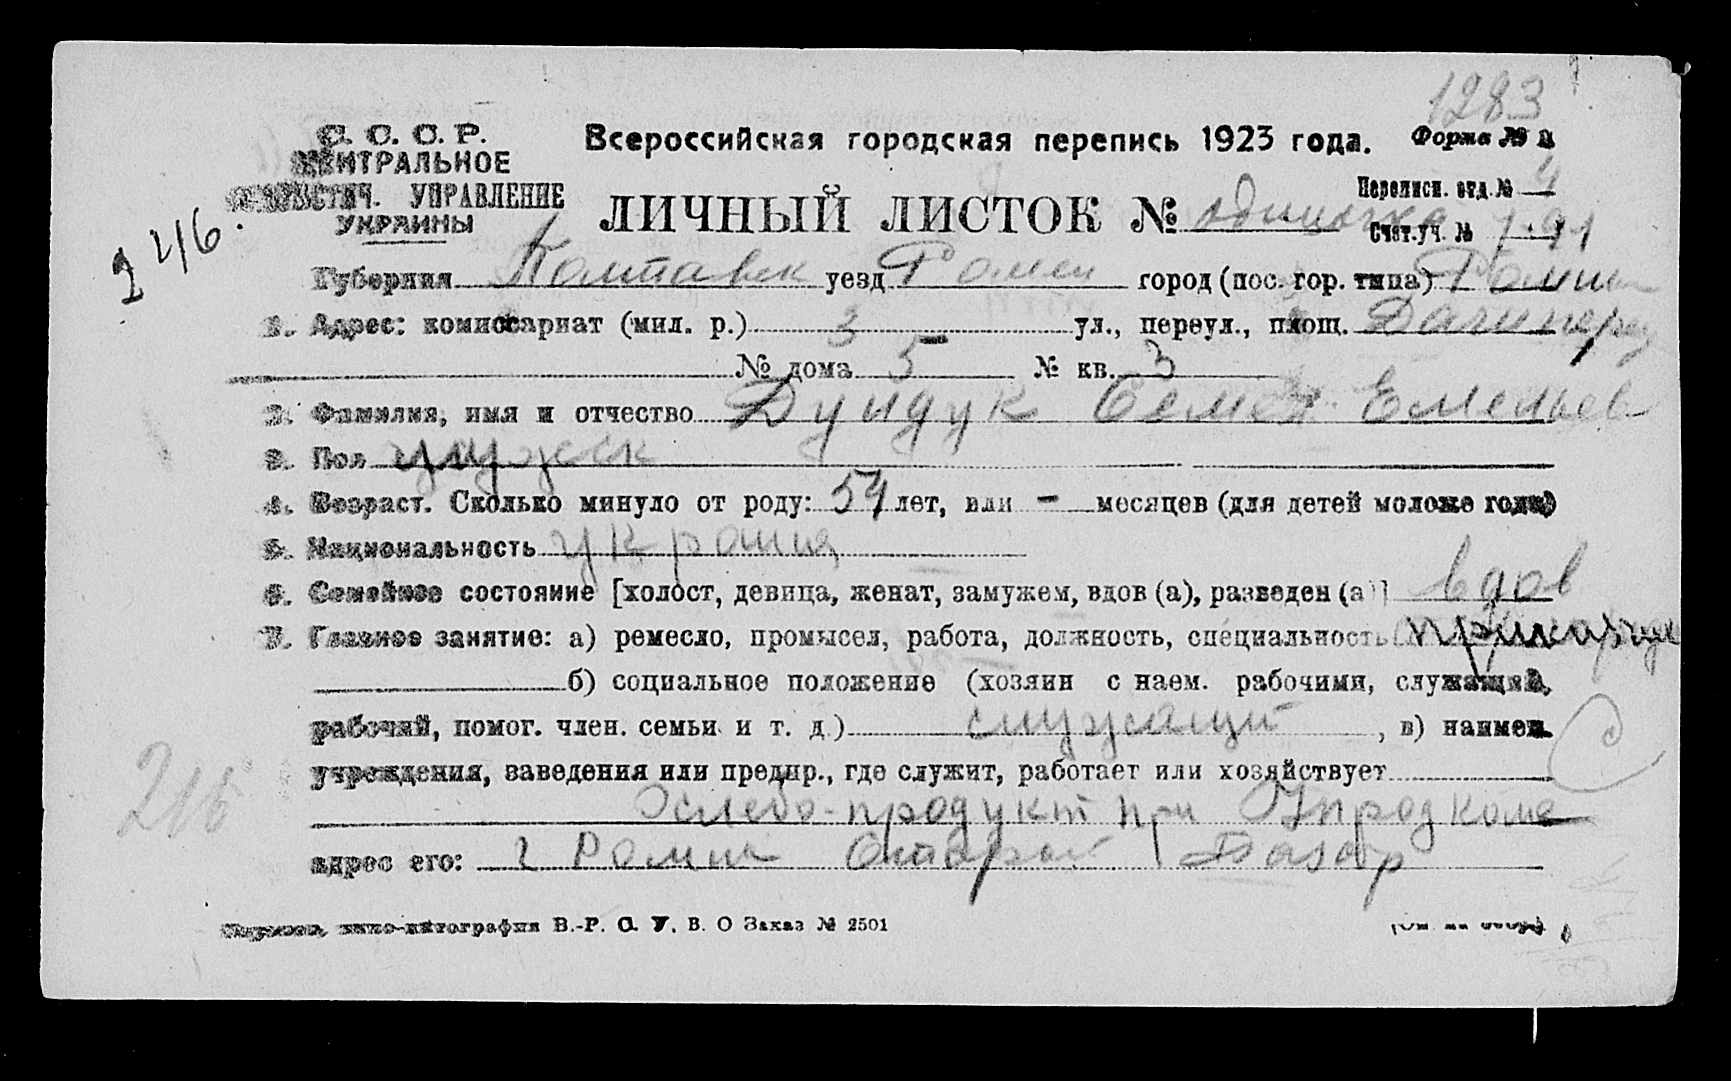 1283
С. С. С. Р.
ЦЕНТРАЛЬНОЕ
СТАТИСТИЧ. УПРАВЛЕНИЕ
УКРАИНЫ
Всероссийская городская перепись 1923 года. Форма № 2
Переписн. отд. № 4
ЛИЧНЫЙ ЛИСТОК № одиночка Счет. уч. № 91
246.
Губерния Полтавск уезд Ромен город (пос. гор. типа) Ромны
1. Адрес: комиссариат (мил. р.) 3 ул., переул., площ.
№ дома 5 № кв. 3
2. Фамилия, имя и отчество Дундук Семен Емельев
3. Пол мужск
4. Возраст. Сколько минуло от роду: 54 лет, или - месяцев (для детей моложе года)
5. Национальность украинц
6. Семейное состояние [холост, девица, женат, замужем, вдов (а), разведен (а)] вдов
7. Главное занятие: а) ремесло, промысел, работа, должность, специальность
б) социальное положение (хозяин с наем. рабочими, служащий,
рабочий, помог. член. семьи и т. д.) служащий, в) наимен.
учреждения, заведения или предпр., где служит, работает или хозяйствует
216
Хлебо-продукт при Упродкоме
адрес его: г Ромны Старый Базар
типо-литография В.-Р. С. У. В. О Заказ № 2501